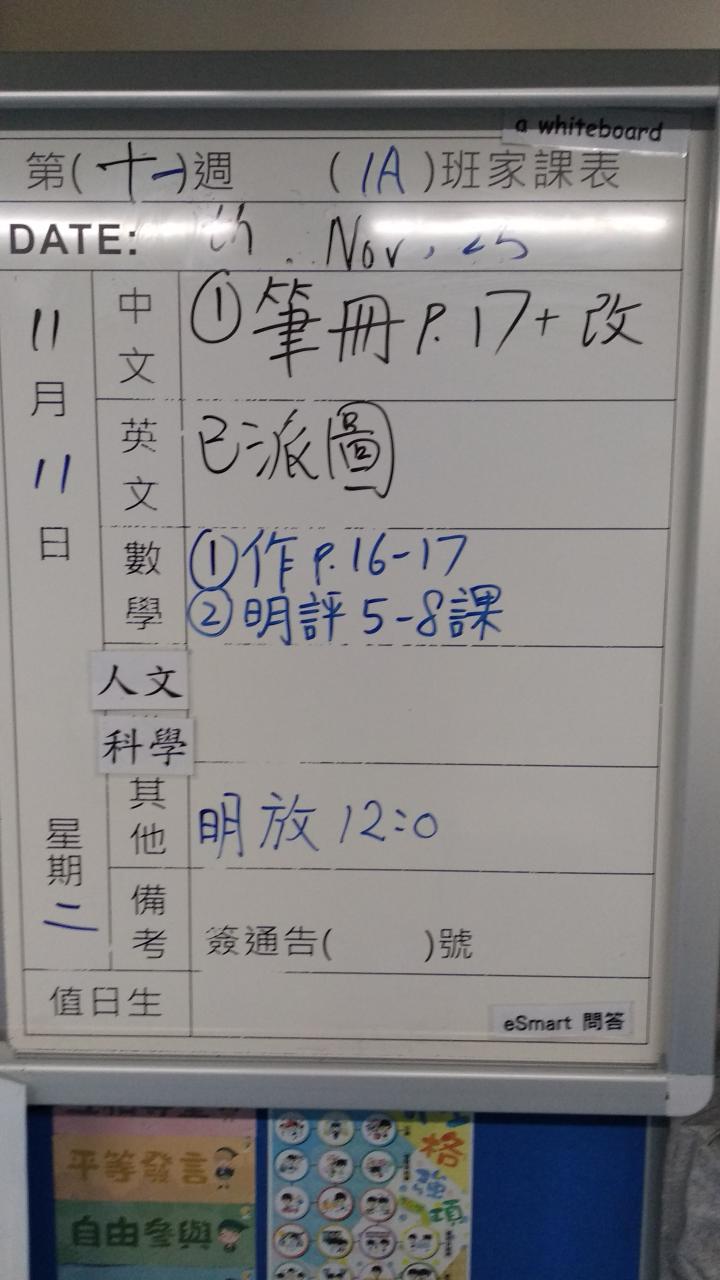 a whiteboard
第(十一)週 (1A)班家課表
DATE: th. Nov, 25
11月11日
星期二
中文 ①筆冊P.17+改
英文 已派圖
數學 ①作P.16-17
②明評5-8課
人文
科學
其他 明放12:0
備考 簽通告( )號
值日生
eSmart 問答
平等發言
自由參與
格強項